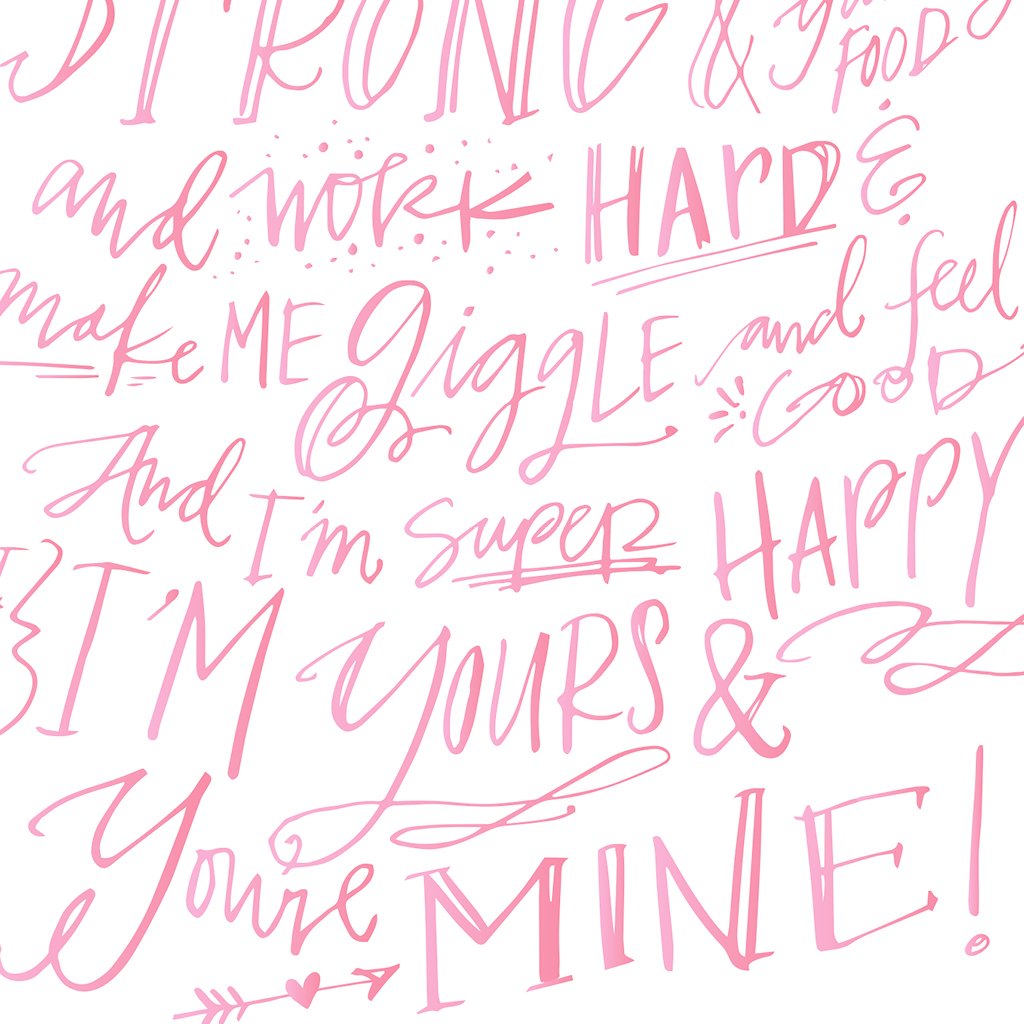 STRONG &
FOOD
and work HARD &
make ME giggLE and feel
GOOD
And I'm super HAPPY
I'M yOURS &
You're MINE!